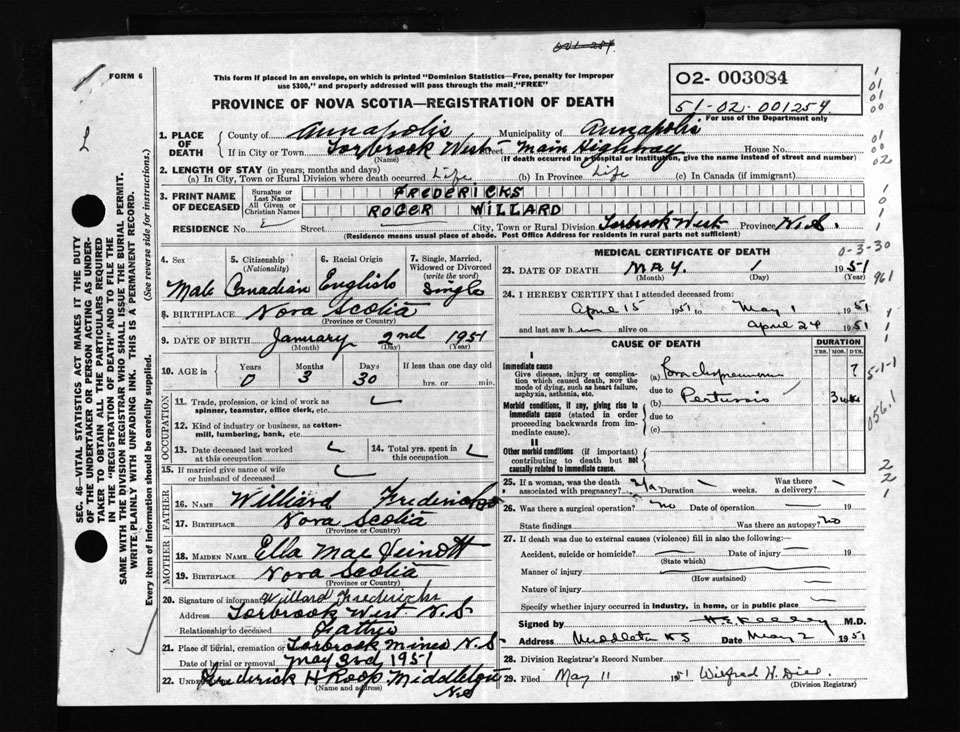 FORM 6
This form if placed in an envelope, on which is printed "Dominion Statistics—Free, penalty for improper
use $300," and properly addressed will pass through the mail, "FREE"
PROVINCE OF NOVA SCOTIA—REGISTRATION OF DEATH
02- 003084
51-02-001254
For use of the Department only
1. PLACE OF DEATH
County of Annapolis Municipality of Annapolis
If in City or Town Torbrook West Street Main Highway House No.
(Name) (If death occurred in a hospital or institution, give the name instead of street and number)
2. LENGTH OF STAY (in years, months and days)
(a) In City, Town or Rural Division where death occurred Life (b) In Province Life (c) In Canada (if immigrant)
3. PRINT NAME OF DECEASED
Surname or Last Name FREDERICKS
All Given or Christian Names ROGER WILLARD
RESIDENCE No. Street City, Town or Rural Division Torbrook West Province N.S.
(Residence means usual place of abode. Post Office Address for residents in rural parts not sufficient)
4. Sex Male
5. Citizenship (Nationality) Canadian
6. Racial Origin English
7. Single, Married, Widowed or Divorced (write the word) Single
8. BIRTHPLACE Nova Scotia
(Province or Country)
9. DATE OF BIRTH January 2nd 1951
(Month) (Day) (Year)
10. AGE in Years Months Days If less than one day old
0 3 30 hrs. or min.
OCCUPATION
11. Trade, profession, or kind of work as
spinner, teamster, office clerk, etc.
12. Kind of industry or business, as cotton-
mill, lumbering, bank, etc.
13. Date deceased last worked at this occupation
14. Total yrs. spent in this occupation
15. If married give name of wife
or husband of deceased
FATHER
16. NAME Williard Fredericks
17. BIRTHPLACE Nova Scotia
(Province or Country)
MOTHER
18. MAIDEN NAME Ella Mae
19. BIRTHPLACE Nova Scotia
(Province or Country)
20. Signature of informant Willard Fredericks
Address Torbrook West N.S
Relationship to deceased Father
21. Place of burial, cremation or Torbrook Mines N.S.
Date of burial or removal May 3rd 1951
22. Frederick H Roop Middleton
(Name and address) N.S
MEDICAL CERTIFICATE OF DEATH
0-3-30
23. DATE OF DEATH MAY. 1 1951
(Month) (Day) (Year)
961
24. I HEREBY CERTIFY that I attended deceased from:
April 15 1951 to May 1 1951
and last saw h im alive on April 24 1951
CAUSE OF DEATH
DURATION
YRS. MOS. DYS.
I
Immediate cause
Give disease, injury or complica-
tion which caused death, NOT the
mode of dying, such as heart failure,
asphyxia, asthenia, etc.
(a) 7
due to
Morbid conditions, if any, giving rise to
immediate cause (stated in order
proceeding backwards from im-
mediate cause).
(b) Pertussis 3 wks
due to
(c)
5-1-1
056.1
II
Other morbid conditions (if important)
contributing to death but not
causally related to immediate cause.
25. If a woman, was the death
associated with pregnancy? Duration weeks. Was there
a delivery?
26. Was there a surgical operation? No Date of operation 19
State findings Was there an autopsy? No
27. If death was due to external causes (violence) fill in also the following:
Accident, suicide or homicide? Date of injury 19
(State which)
Manner of injury
(How sustained)
Nature of injury
Specify whether injury occurred in industry, in home, or in public place
Signed by M.D.
Address Middleton N S Date May 2 1951
28. Division Registrar's Record Number
29. Filed May 11 1951 Wilfred H.
(Division Registrar)
SEC. 46—VITAL STATISTICS ACT MAKES IT THE DUTY
OF THE UNDERTAKER OR PERSON ACTING AS UNDER-
TAKER TO OBTAIN ALL THE PARTICULARS REQUIRED
IN THE "REGISTRATION OF DEATH" AND TO FILE THE
SAME WITH THE DIVISION REGISTRAR WHO SHALL ISSUE THE BURIAL PERMIT.
WRITE PLAINLY WITH UNFADING INK. THIS IS A PERMANENT RECORD.
Every item of information should be carefully supplied. (See reverse side for instructions.)